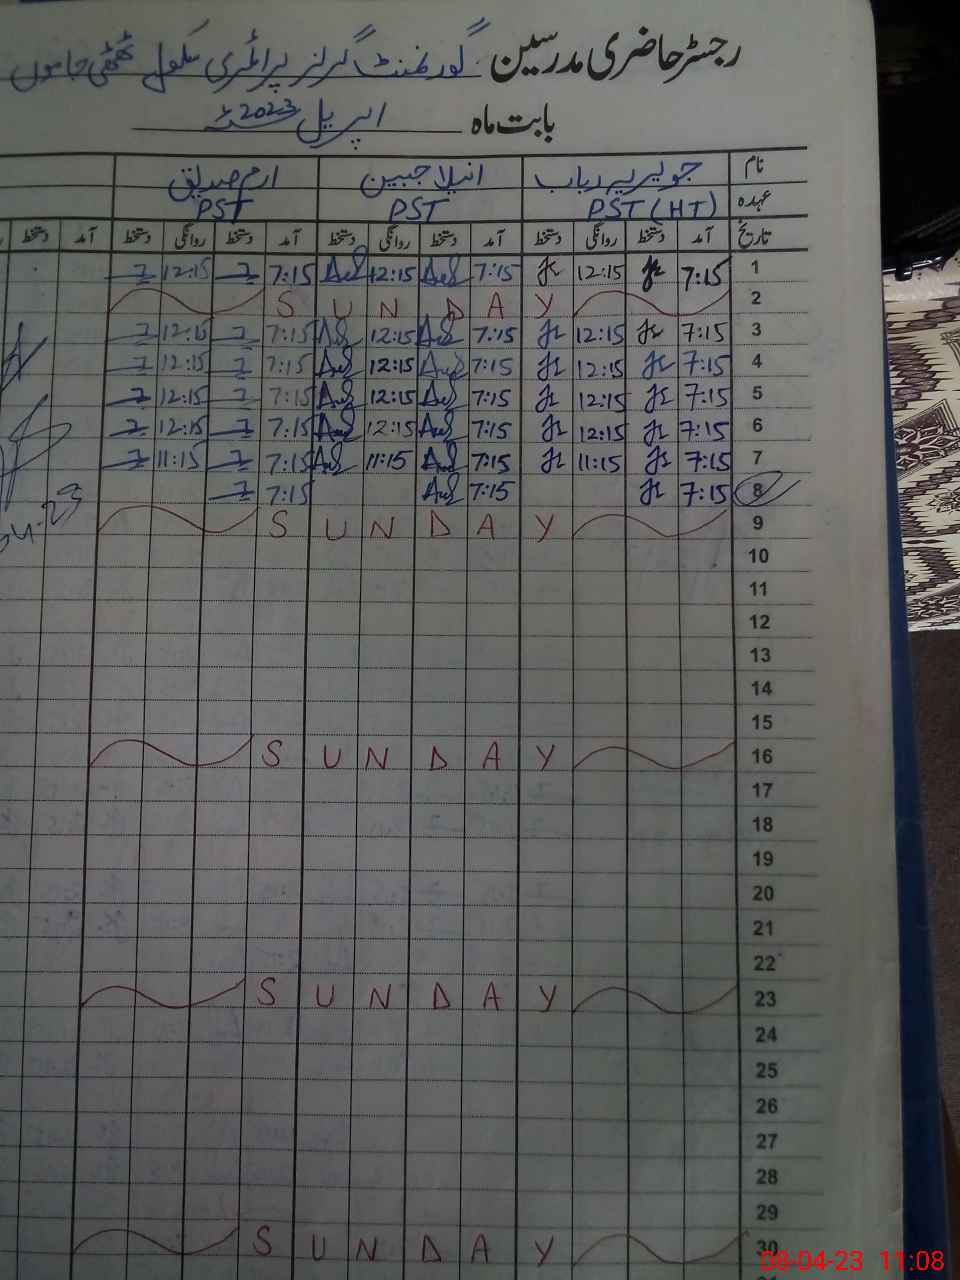 رجسٹر حاضری مدرسین گورنمنٹ گرلز پرائمری سکول ٹھٹھی جاموں
بابت ماہ اپریل 2023
نام جویریہ رباب انیلا جبین ارم صدیق
عہدہ PST (HT) PST PST
تاریخ آمد دستخط روانگی دستخط آمد دستخط روانگی دستخط آمد دستخط روانگی دستخط آمد دستخط
1 7:15 12:15 7:15 12:15 7:15 12:15
2 S U N D A Y
3 7:15 12:15 7:15 12:15 7:15 12:15
4 7:15 12:15 7:15 12:15 7:15 12:15
5 7:15 12:15 7:15 12:15 7:15 12:15
6 7:15 12:15 7:15 12:15 7:15 12:15
7 7:15 11:15 7:15 11:15 7:15 11:15
8 7:15 7:15 7:15
9 S U N D A Y
10
11
12
13
14
15
16 S U N D A Y
17
18
19
20
21
22
23 S U N D A Y
24
25
26
27
28
29
30 S U N D A Y
08-04-23 11:08